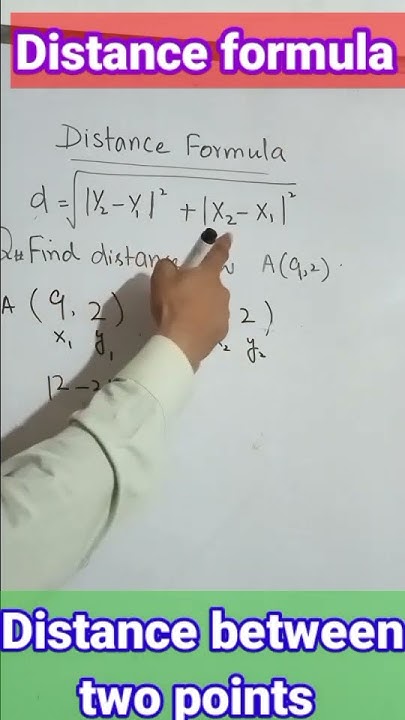 Distance formula
Distance Formula
d = √|Y₂ - Y₁|² + |X₂ - X₁|²
Find distan A(9,2).
A (9, 2) 2)
x₁ y₁ ₂ y₂
|2 - 2
Distance between
two points